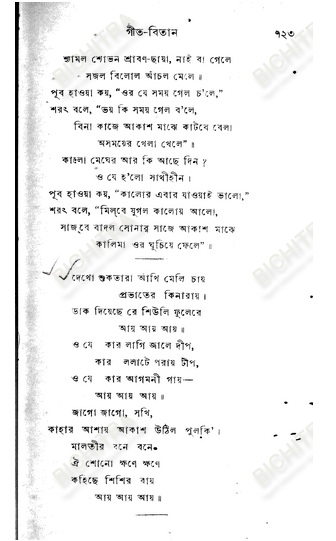 গীত-বিতান ৭২৩
শ্যামল শোভন শ্রাবণ-ছায়া, নাই বা গেলে
সজল বিলোল আঁচল মেলে॥
পূব হাওয়া কয়, “ওর যে সময় গেল চ’লে,”
শরৎ বলে, “ভয় কি সময় গেল ব’লে,
বিনা কাজে আকাশ মাঝে কাটবে বেলা
অসময়ের খেলা খেলে”॥
কালো মেঘের আর কি আছে দিন ?
ও যে হ’লো সাথীহীন।
পূব হাওয়া কয়, “কালোর এবার যাওয়াই ভালো,”
শরৎ বলে, “মিল্‌বে যুগল কালোয় আলো,
সাজ্‌বে বাদল সোনার সাজে আকাশ মাঝে
কালিমা ওর ঘুচিয়ে ফেলে”॥
দেখো শুকতারা আঁখি মেলি চায়
প্রভাতের কিনারায়।
ডাক দিয়েছে রে শিউলি ফুলেরে
আয় আয় আয়॥
ও যে কার লাগি জালে দীপ,
কার ললাটে পরায় টীপ,
ও যে কার আগমনী গায়—
আয় আয় আয়॥
জাগো জাগো, সখি,
কাহার আশায় আকাশ উঠিল পুলকি’।
মালতীর বনে বনে
ঐ শোনো ক্ষণে ক্ষণে
কহিছে শিশির বায়
আয় আয় আয়॥
BICHITRA